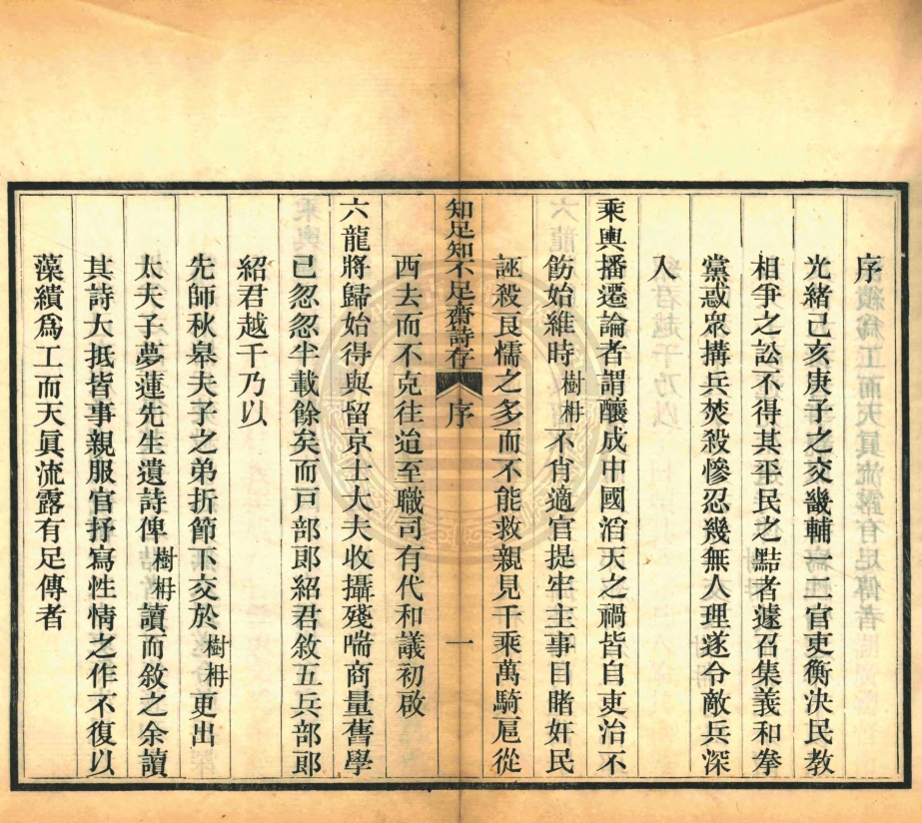 序
光緒己亥庚子之交畿輔一二官吏衡決民教
相爭之訟不得其平民之黠者遽召集義和拳
黨惑眾搆兵焚殺慘忍幾無人理遂令敵兵深
入
乘輿播遷論者謂釀成中國滔天之禍皆自吏治不
飭始維時樹枏不肖適官提牢主事目睹奸民
誣殺良懦之多而不能救親見千乘萬騎扈從
知足知不足齋詩存 序 一
西去而不克往迨至職司有代和議初啟
六龍將歸始得與留京士大夫收攝殘喘商量舊學
已忽忽半載餘矣而戸部郎紹君敘五兵部郎
紹君越千乃以
先師秋皋夫子之弟折節下交於樹枏更出
太夫子夢蓮先生遺詩俾樹枏讀而敘之余讀
其詩大抵皆事親服官抒寫性情之作不復以
藻繢爲工而天眞流露有足傳者